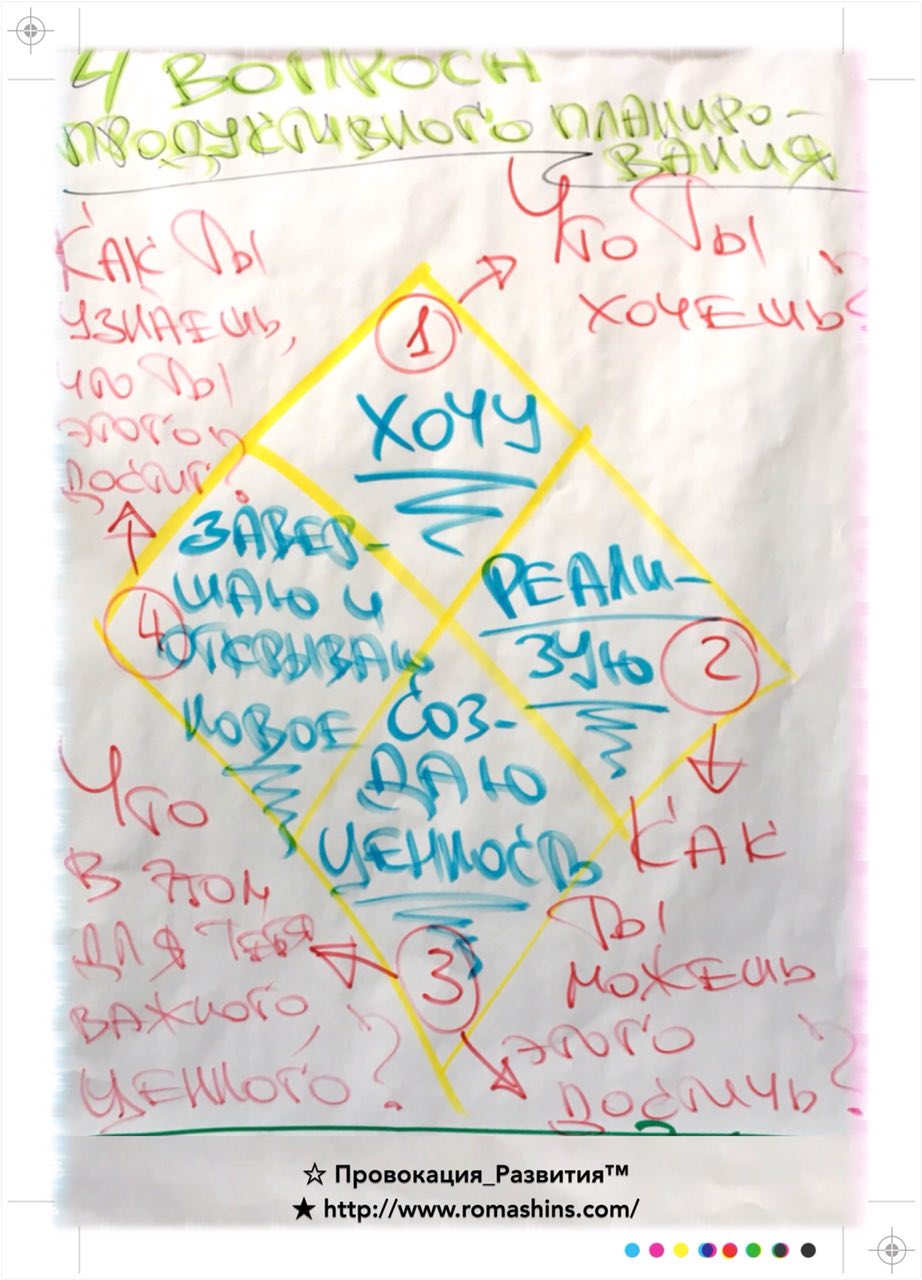 4 ВОПРОСА
ПРОДУКТИВНОГО ПЛАНИРО-
ВАНИЯ
ЧТО ТЫ
ХОЧЕШЬ?
КАК ТЫ
УЗНАЕШЬ,
ЧТО ТЫ
ЭТОГО
ДОСТИГ?
1
ХОЧУ
4
ЗАВЕР-
ШАЮ И
ОТКРЫВАЮ
НОВОЕ
РЕАЛИ-
ЗУЮ
2
СОЗ-
ДАЮ
ЦЕННОСТЬ
3
КАК
ТЫ
МОЖЕШЬ
ЭТОГО
ДОСТИЧЬ?
ЧТО
В ЭТОМ
ДЛЯ ТЕБЯ
ВАЖНОГО,
ЦЕННОГО?
☆ Провокация_Развития™
★ http://www.romashins.com/